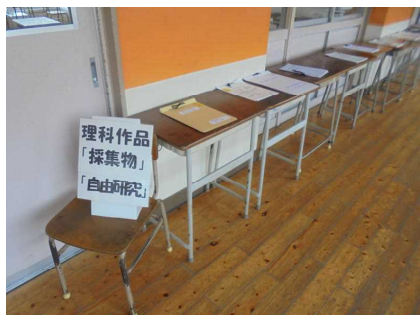 理科作品
「採集物」
「自由研究」